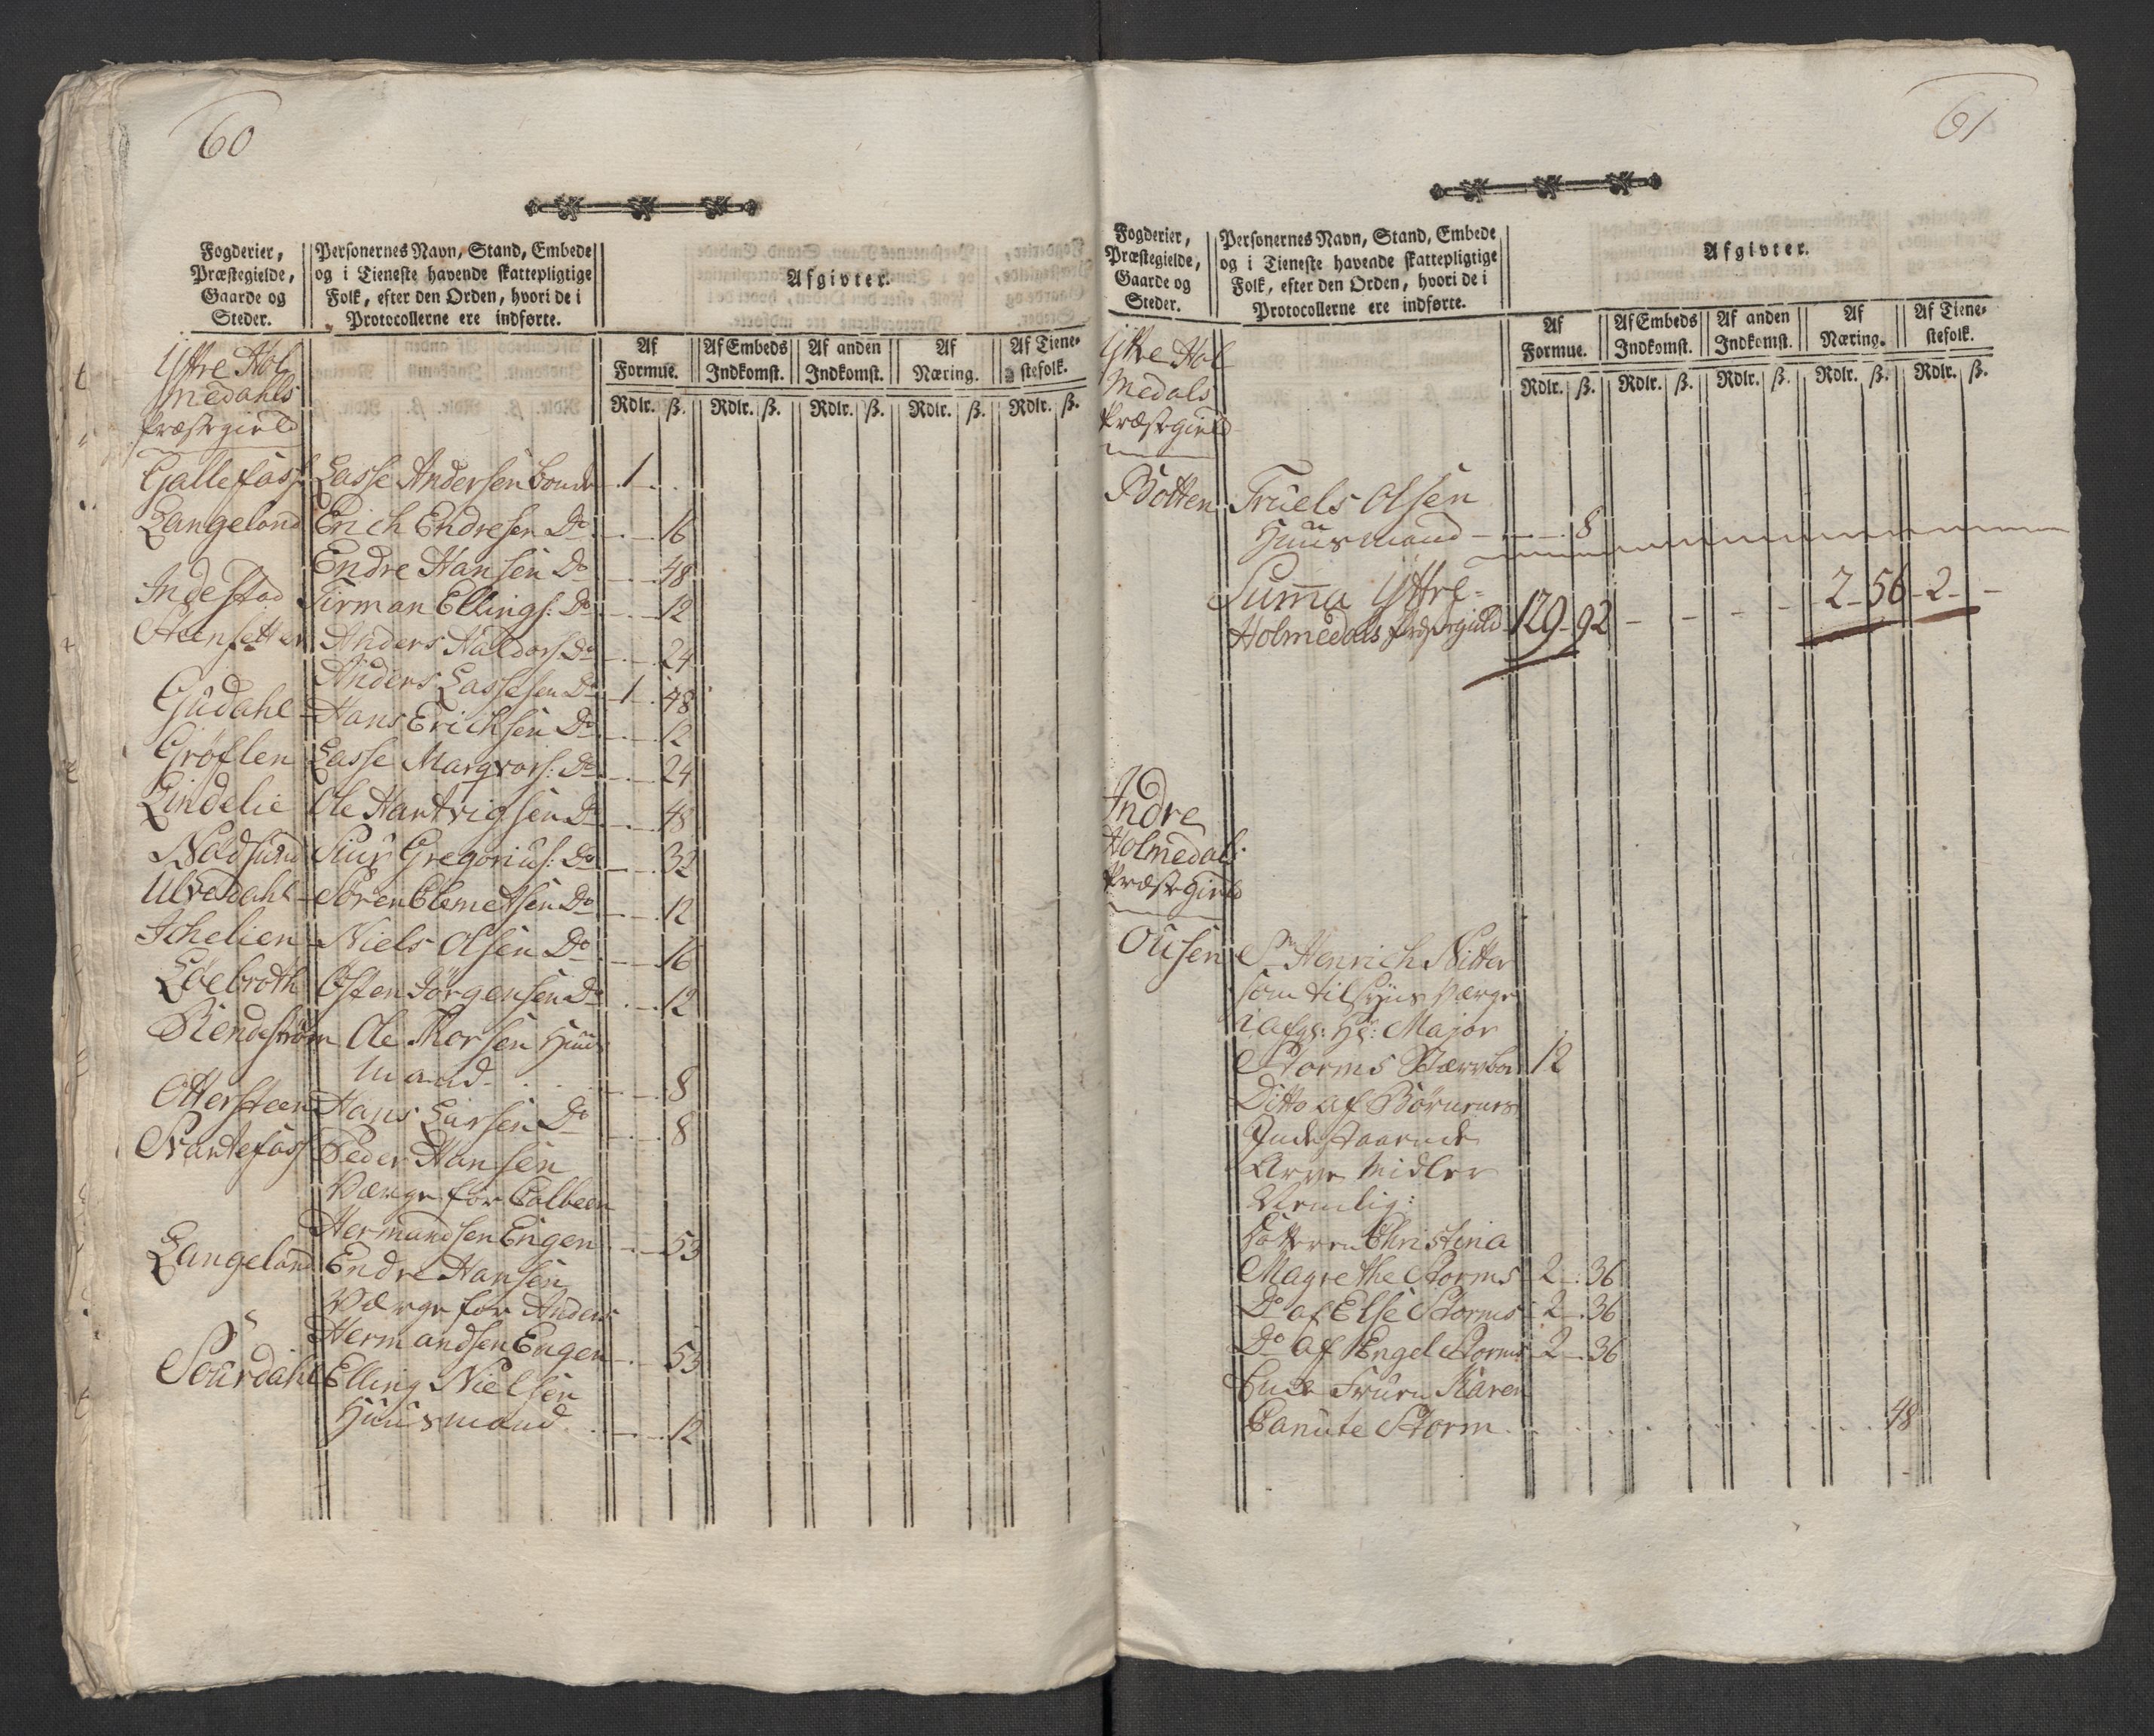 60
Fogderier,
Præstegielde,
Gaarde og
Steder.
Personernes Navn, Stand, Embede
og i Tieneste havende skattepligtige
Folk, efter den Orden, hvori de i
Protocollerne ere indførte.
Afgivter.
Af Formue. Af Embeds Indkomst. Af anden Indkomst. Af Næring. Af Tienestefolk.
Rdlr. ß. Rdlr. ß. Rdlr. ß. Rdlr. ß. Rdlr. ß.
Yttre Hol
medahls
Præstegield
Gallefoss Lasse Andersen bonde 1
Langeland Erich Endresen Do 16
Endre Hansen Do 48
Indestad Sirman Ellings: Do 12
Steensetter Anders Haldors: Do 24
Anders Lassesen Do 1 48
Gudahl Hans Erichsen Do 12
Grøflen Lasse Marqvors: Do 24
Lindelie Ole Hantvigsen Do 48
Nodsund Siur Gregorius: Do 32
Ulvesdahl Søren Clemetsen Do 12
Ichelien Niels Olsen Do 16
Løebroth Østen Jørgensen Do 12
Rendestrøm Ole Thorsen Huus
mand 8
Ottersteen Hans Larsen Do 8
Svartefoss Peder Hansen
Værge for Colbeen
Hermandsen Engen 53
Langeland Endre Hansen
Værge for Anders
Hermandsen Engen 53
Sourdahl Elling Nielsen
Huusmand 12
61
Fogderier,
Præstegielde,
Gaarde og
Steder.
Personernes Navn, Stand, Embede
og i Tieneste havende skattepligtige
Folk, efter den Orden, hvori de i
Protocollerne ere indførte.
Afgivter.
Af Formue. Af Embeds Indkomst. Af anden Indkomst. Af Næring. Af Tienestefolk.
Rdlr. ß. Rdlr. ß. Rdlr. ß. Rdlr. ß. Rdlr. ß.
Yttre Hol
medals
Præstegield
Botten Truels Olsen
Huusmand 8
Summa Yttre
Holmedals Præstegield 129 92 - - - - 2 56 2 -
Indre
Holmedals
Præstegield
Ousen Sr Henrich Nitter
som tilsyns Værge
i afg: Hr: Major
Storms Stærvboe 12
Ditto af Børnenes
Indestaaende
Arve Midler
Nemlig:
Dotteren Christina
Magrethe Storms 2 36
Do af Else Storms 2 36
Do af Engel Storms 2 36
Enke Fruen Karen
Canute Storm 48